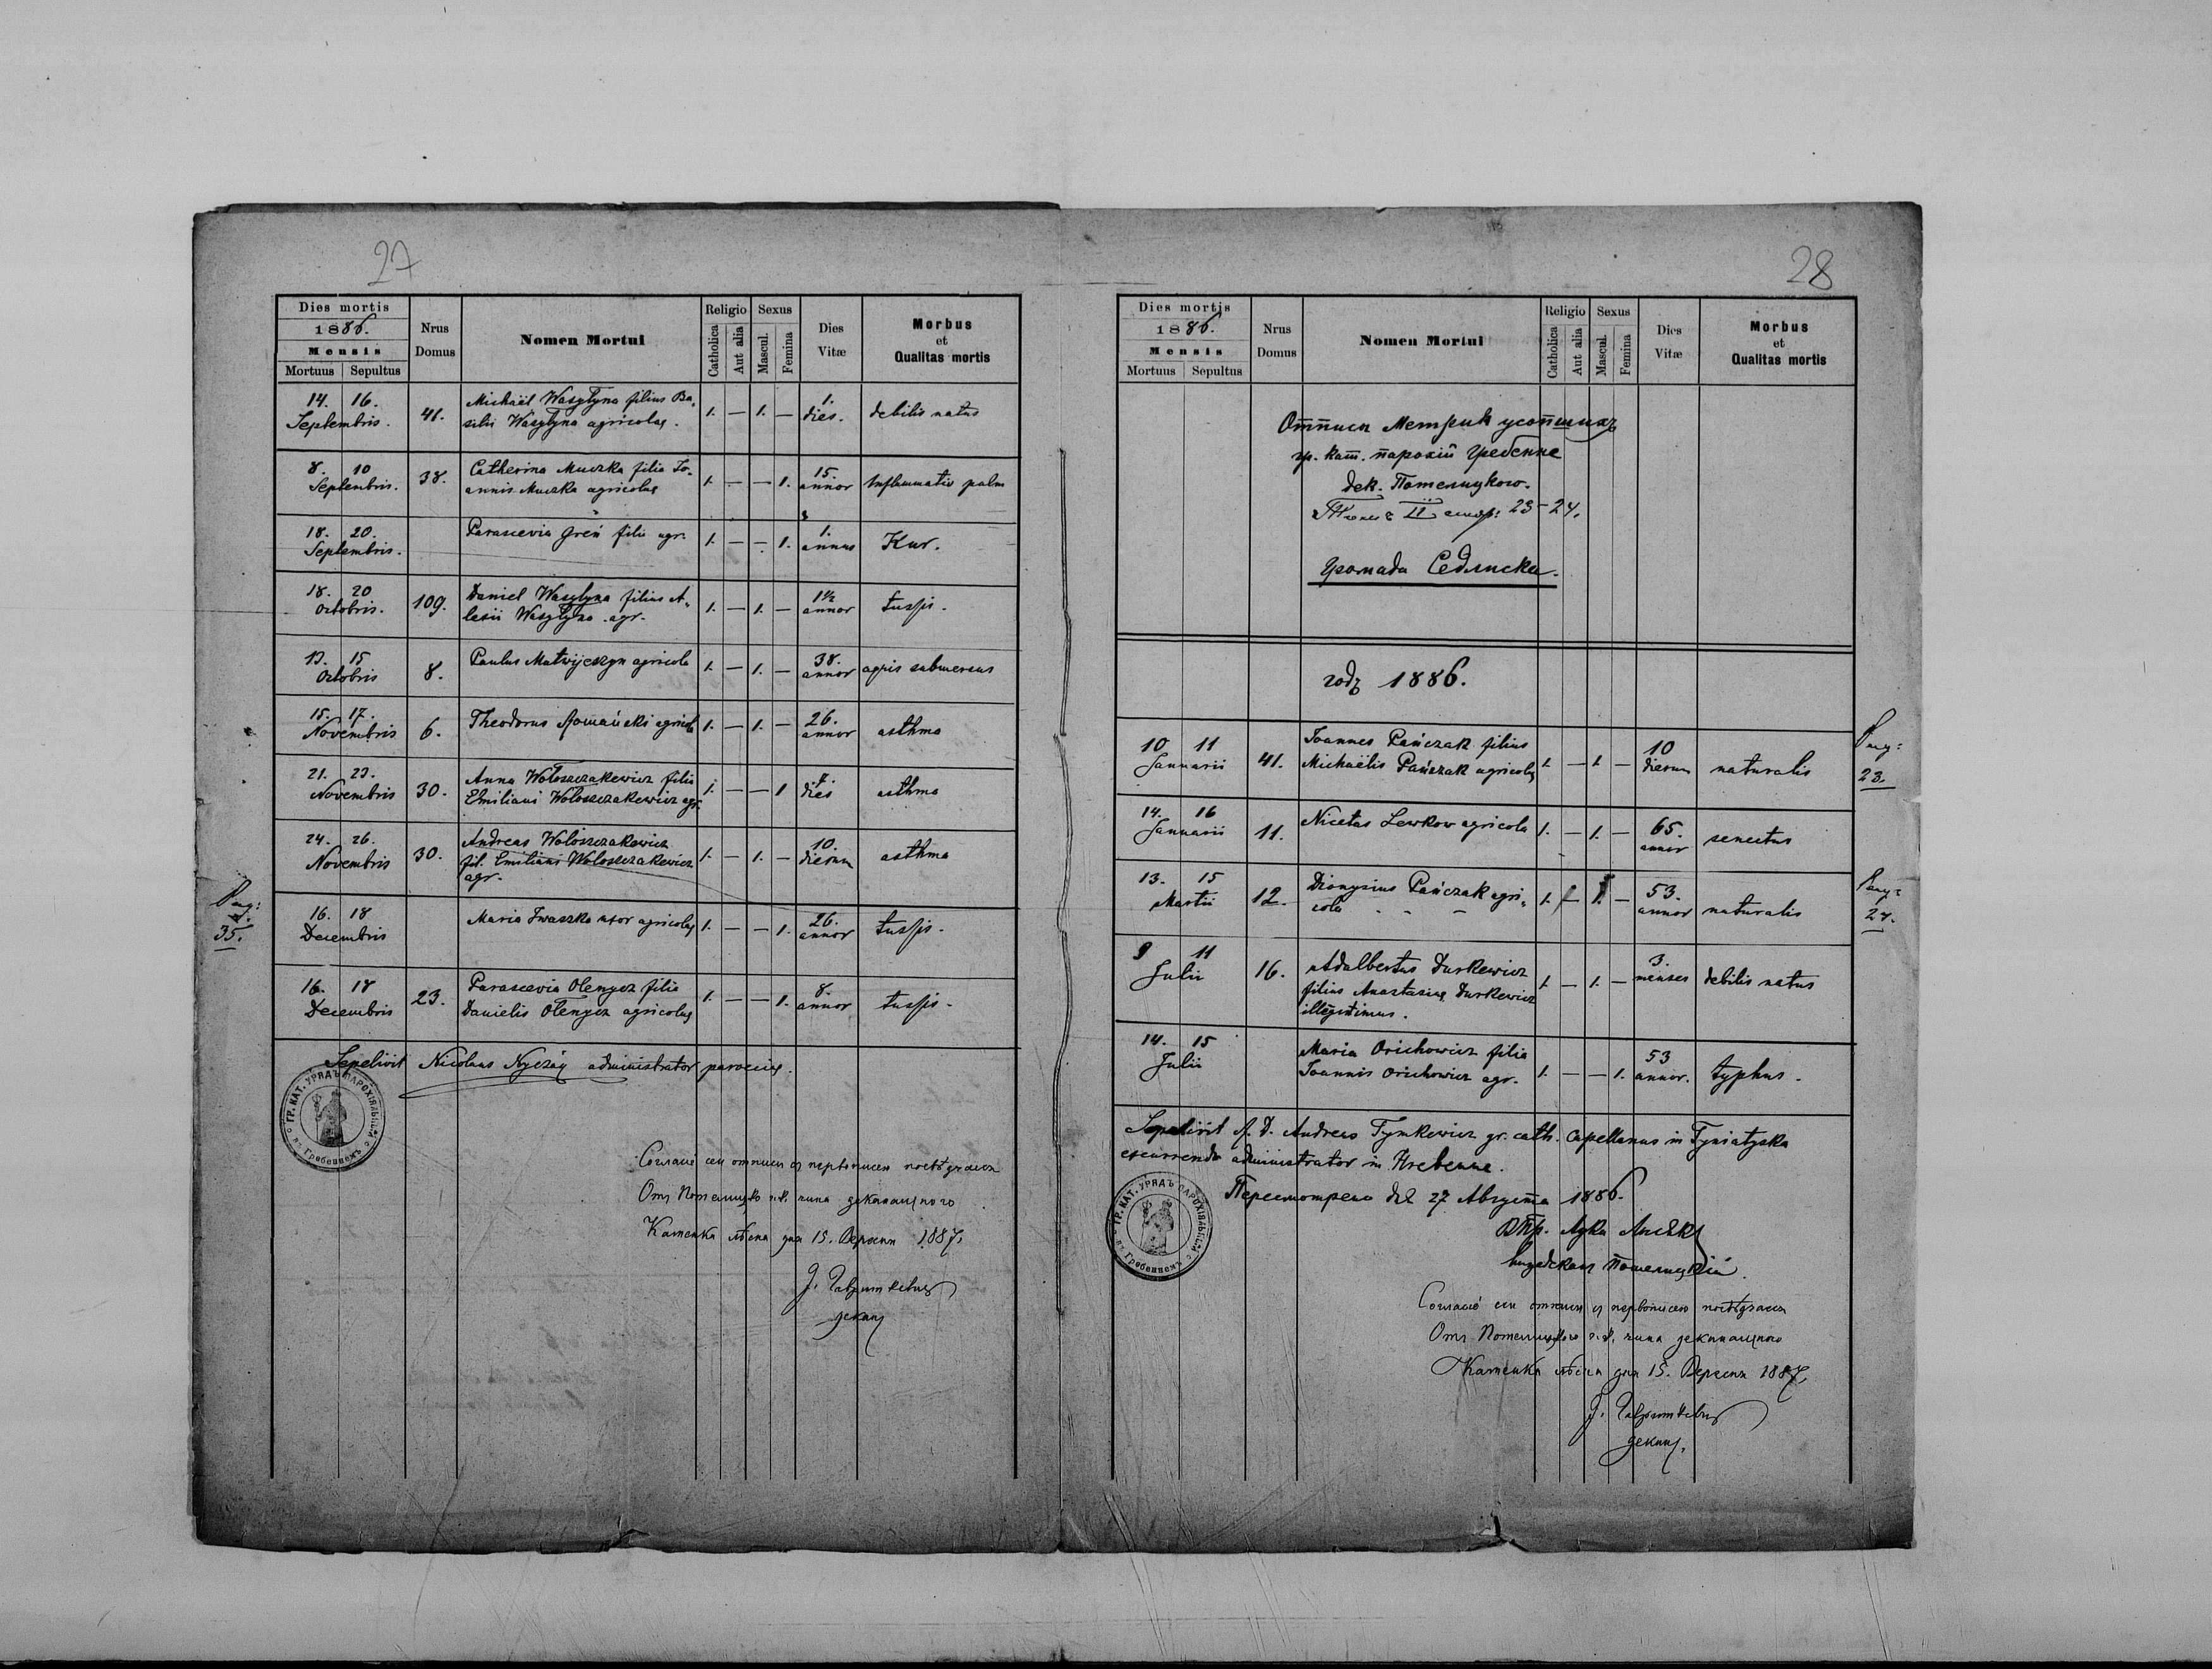 27
Dies mortis
1886.
Mensis
Mortuus Sepultus
Nrus Domus
Nomen Mortui
Religio
Catholica Aut alia
Sexus
Mascul. Femina
Dies Vitæ
Morbus et Qualitas mortis
14. 16. Septembris. 41. Michaël Wasylyna filius Ba, 1. — 1. — 1. dies. debilis natus
silii Wasylyna agricolae.
8. 10 Septembris. 38. Catherina Muczka filia Jo- 1. — — 1. 15. annor Inflammatio pulm
annis Muczka agricolae
18. 20. Septembris. Parascevia Greń filia agr. 1. — — 1. 1. annus Kur.
18. 20 Octobris. 109. Daniel Wasylyna filius A, 1. — 1. — 1½ annor tussis.
lexii Wasylyna agr.
13. 15 Octobris 8. Paulus Matwijeszyn agricola 1. — 1. — 38. annor aquis submersus
15. 17. Novembris 6. Theodorus Romański agricola 1. — 1. — 26. annor asthma
21. 23. Novembris 30. Anna Wołoszczakewicz filia 1. — — 1 7. dies asthma
Emiliani Wołoszczakewicz agr.
24. 26. Novembris 30. Andreas Wołoszczakewicz 1. — 1. — 10. dierum asthma
fil. Emiliani Wołoszczakewicz
agr.
Pag:
35.
16. 18 Decembris Maria Iwaszko uxor agricolae 1. — — 1. 26. annor tussis.
16. 18 Decembris 23. Parascevia Olenycz filia 1. — — 1. 8. annor tussis.
Danielis Olenycz agricolae
Sepelivit Nicolaus Nyczaj administrator parociae.
ГР. КАТ. УРЯДЪ ПАРОХІЯЛЬНЫЙ
въ Гребеннемъ
Согласіе сеи отписи съ первописею посвѣдчаеся
Отъ Потелицкого г.к. чина деканального
Каменка лѣсна дня 15. Вересня 1887.
декан
28
Dies mortis
1886.
Mensis
Mortuus Sepultus
Nrus Domus
Nomen Mortui
Religio
Catholica Aut alia
Sexus
Mascul. Femina
Dies Vitæ
Morbus et Qualitas mortis
Отпись Метрик усопших
гр. кат. парохіи Гребенне
дек. Потелицкого.
Томъ II стор: 23–24.
громада Седлиска.
годъ 1886.
Pag:
23.
10 11 Januarii 41. Joannes Pańczak filius 1. — 1. — 10 dierum naturalis
Michaëlis Pańczak agricolae
14. 16 Januarii 11. Nicetas Lewkow agricola 1. — 1. — 65. annor senectus
Pag:
24.
13. 15 Martii 12. Dionysius Pańczak agri, 1. — 1. — 53. annor naturalis
cola
9 11 Julii 16. Adalbertus Durkewicz 1. — 1. — 3. menses debilis natus
filius Anastasiae Durkewicz
illegitimus.
14. 15 Julii Maria Orichowicz filia 1. — — 1. 53 annor. typhus.
Joannis Orichowicz agr.
Sepelivit A. D. Andreas Tymkewicz gr. cath. Capellanus in Tyniatyska
excurrendo administrator in Hrebenne.
ГР. КАТ. УРЯДЪ ПАРОХІЯЛЬНЫЙ
въ Гребеннемъ
Пересмотрено дня 27 Августа 1886.
Потелицкій
Согласіе сеи отписи съ первописею посвѣдчаеся
Отъ Потелицкого г.к. чина деканального
Каменка лѣсна дня 15. Вересня 1887.
декан.